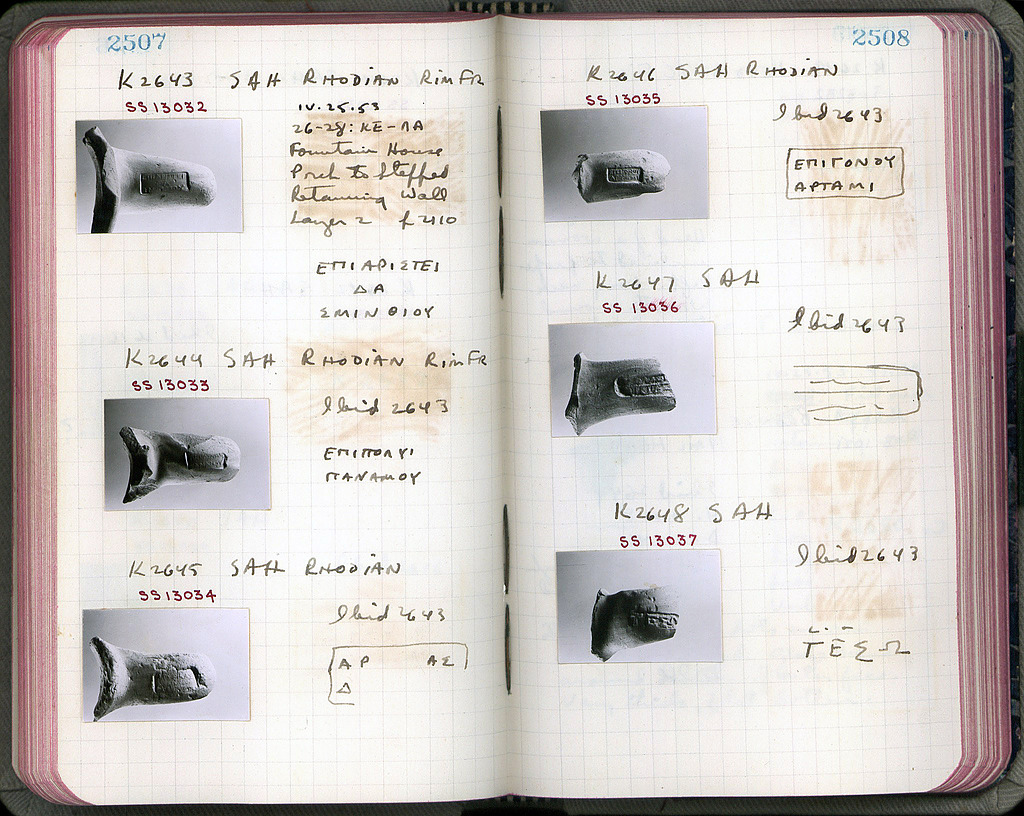 2507
K2643 SAH RHODIAN RIM FR
SS 13032
IV.25.53
26-28: ΚΕ-ΛΑ
Fountain House
Porch to Stepped
Retaining Wall
Layer 2
ΕΠΙΑΡΙΣΤΕΙ
ΔΑ
ΣΜΙΝΘΙΟΥ
K2644 SAH RHODIAN RIM FR
SS 13033
Ibid 2643
ΕΠΙΠΟΛΥΙ
ΠΑΝΑΜΟΥ
K2645 SAH RHODIAN
SS 13034
Ibid 2643
ΑΡ ΑΣ
Δ
2508
K2646 SAH RHODIAN
SS 13035
Ibid 2643
ΕΠΙΓΟΝΟΥ
ΑΡΤΑΜΙ
K2647 SAH
SS 13036
Ibid 2643
K2648 SAH
SS 13037
Ibid 2643
ΤΕΣΩ